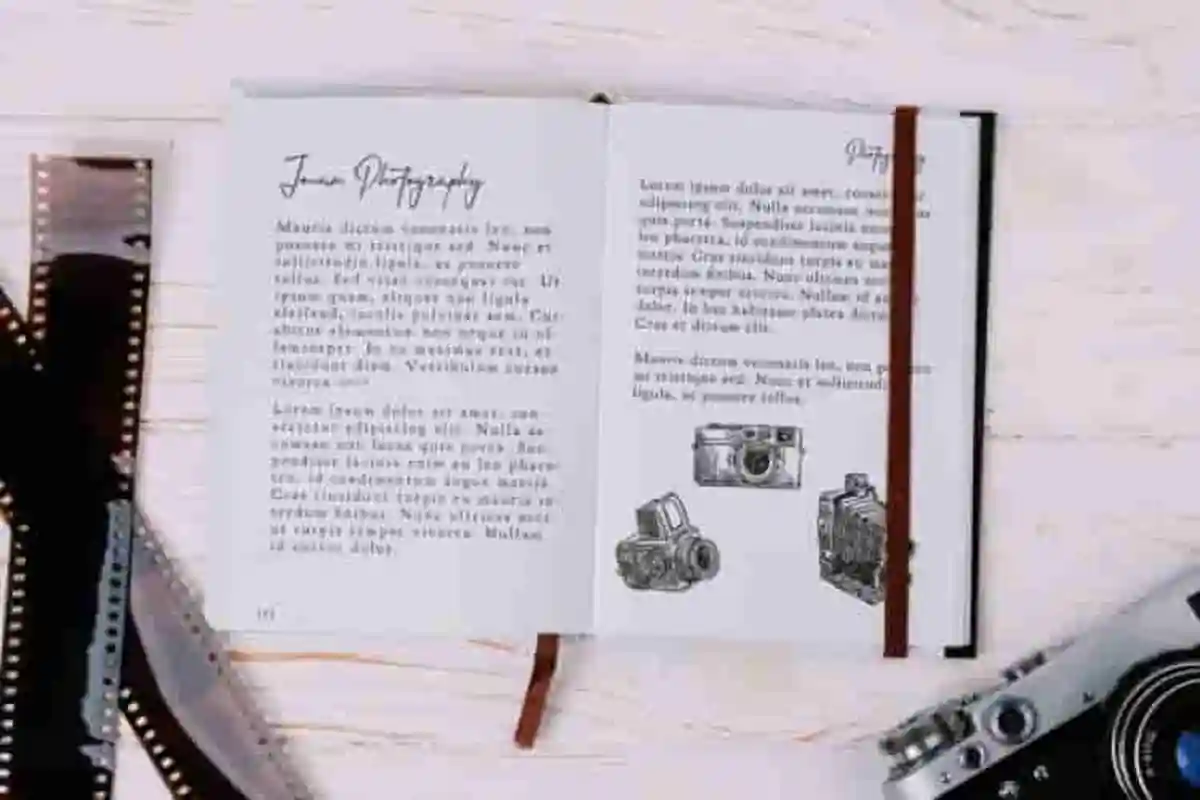 Photography
Mauris dictum venenatis leo, non
posuere mi tristique sed. Nunc et
sollicitudin ligula, ac posuere
tellus. Sed vitae consequat Ut
ipsum quam, aliquet non ligula
eleifend, iaculis pulvinar sem. Cur-
abitur elementum non neque in ul-
lamcorper. In eu maximus erat, et
tincidunt diam. Vestibulum cursus
viverra
Lorem ipsum dolor sit amet, con-
sectetur adipiscing elit. Nulla ac-
cumsan nec lacus quis porta. Sus-
pendisse lacinia enim eu leo phare-
tra, id condimentum augue mattis.
Cras tincidunt turpis eu mauris in-
terdum finibus. Nunc ultrices
ut turpis semper viverra. Nullam
id auctor dolor.
Lorem ipsum dolor sit amet,
adipiscing elit. Nulla accumsan
quis porta. Suspendisse lacinia
leo pharetra, id condimentum
mattis. Cras tincidunt turpis eu
interdum finibus. Nunc ultrices
turpis semper viverra. Nullam id
dolor. In hac habitasse platea
Cras et dictum elit.
Mauris dictum venenatis leo, non
mi tristique sed. Nunc et
ligula, ac posuere tellus.